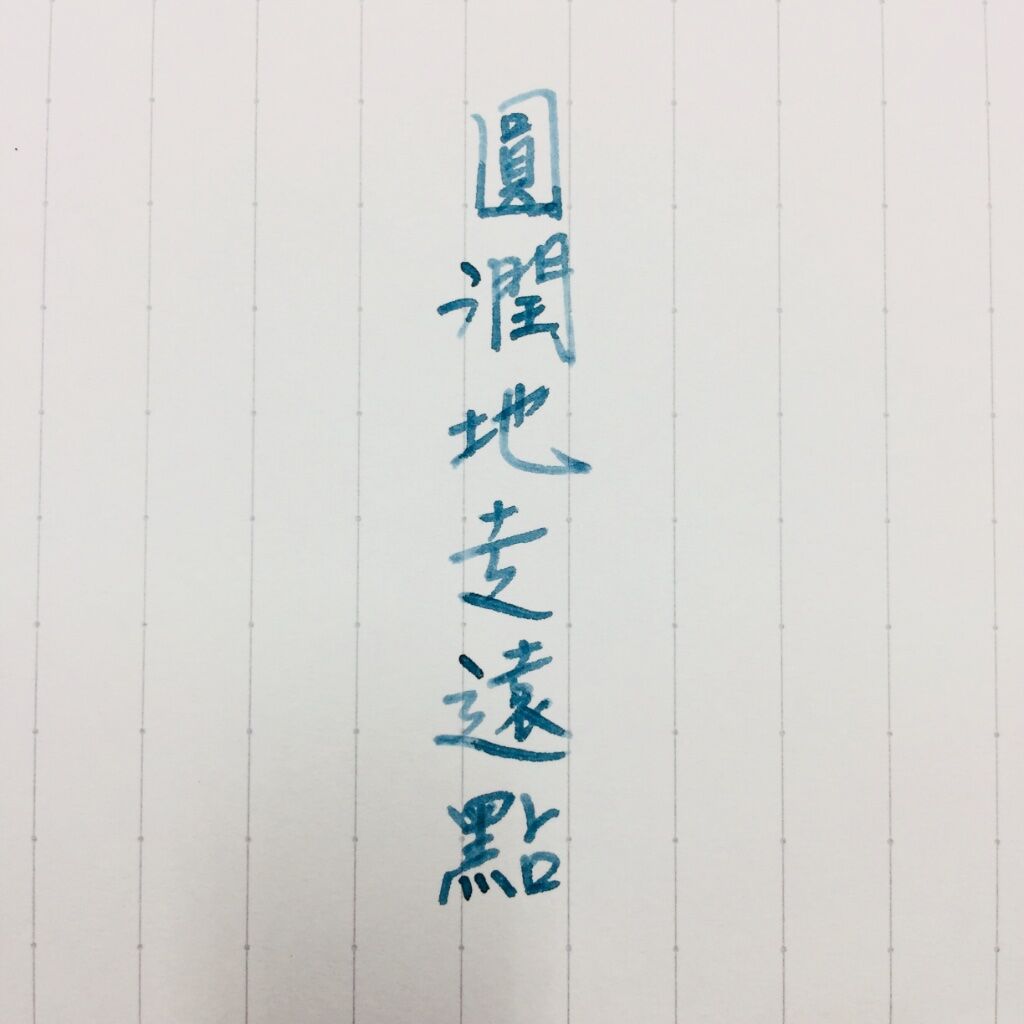 圓潤地走遠點